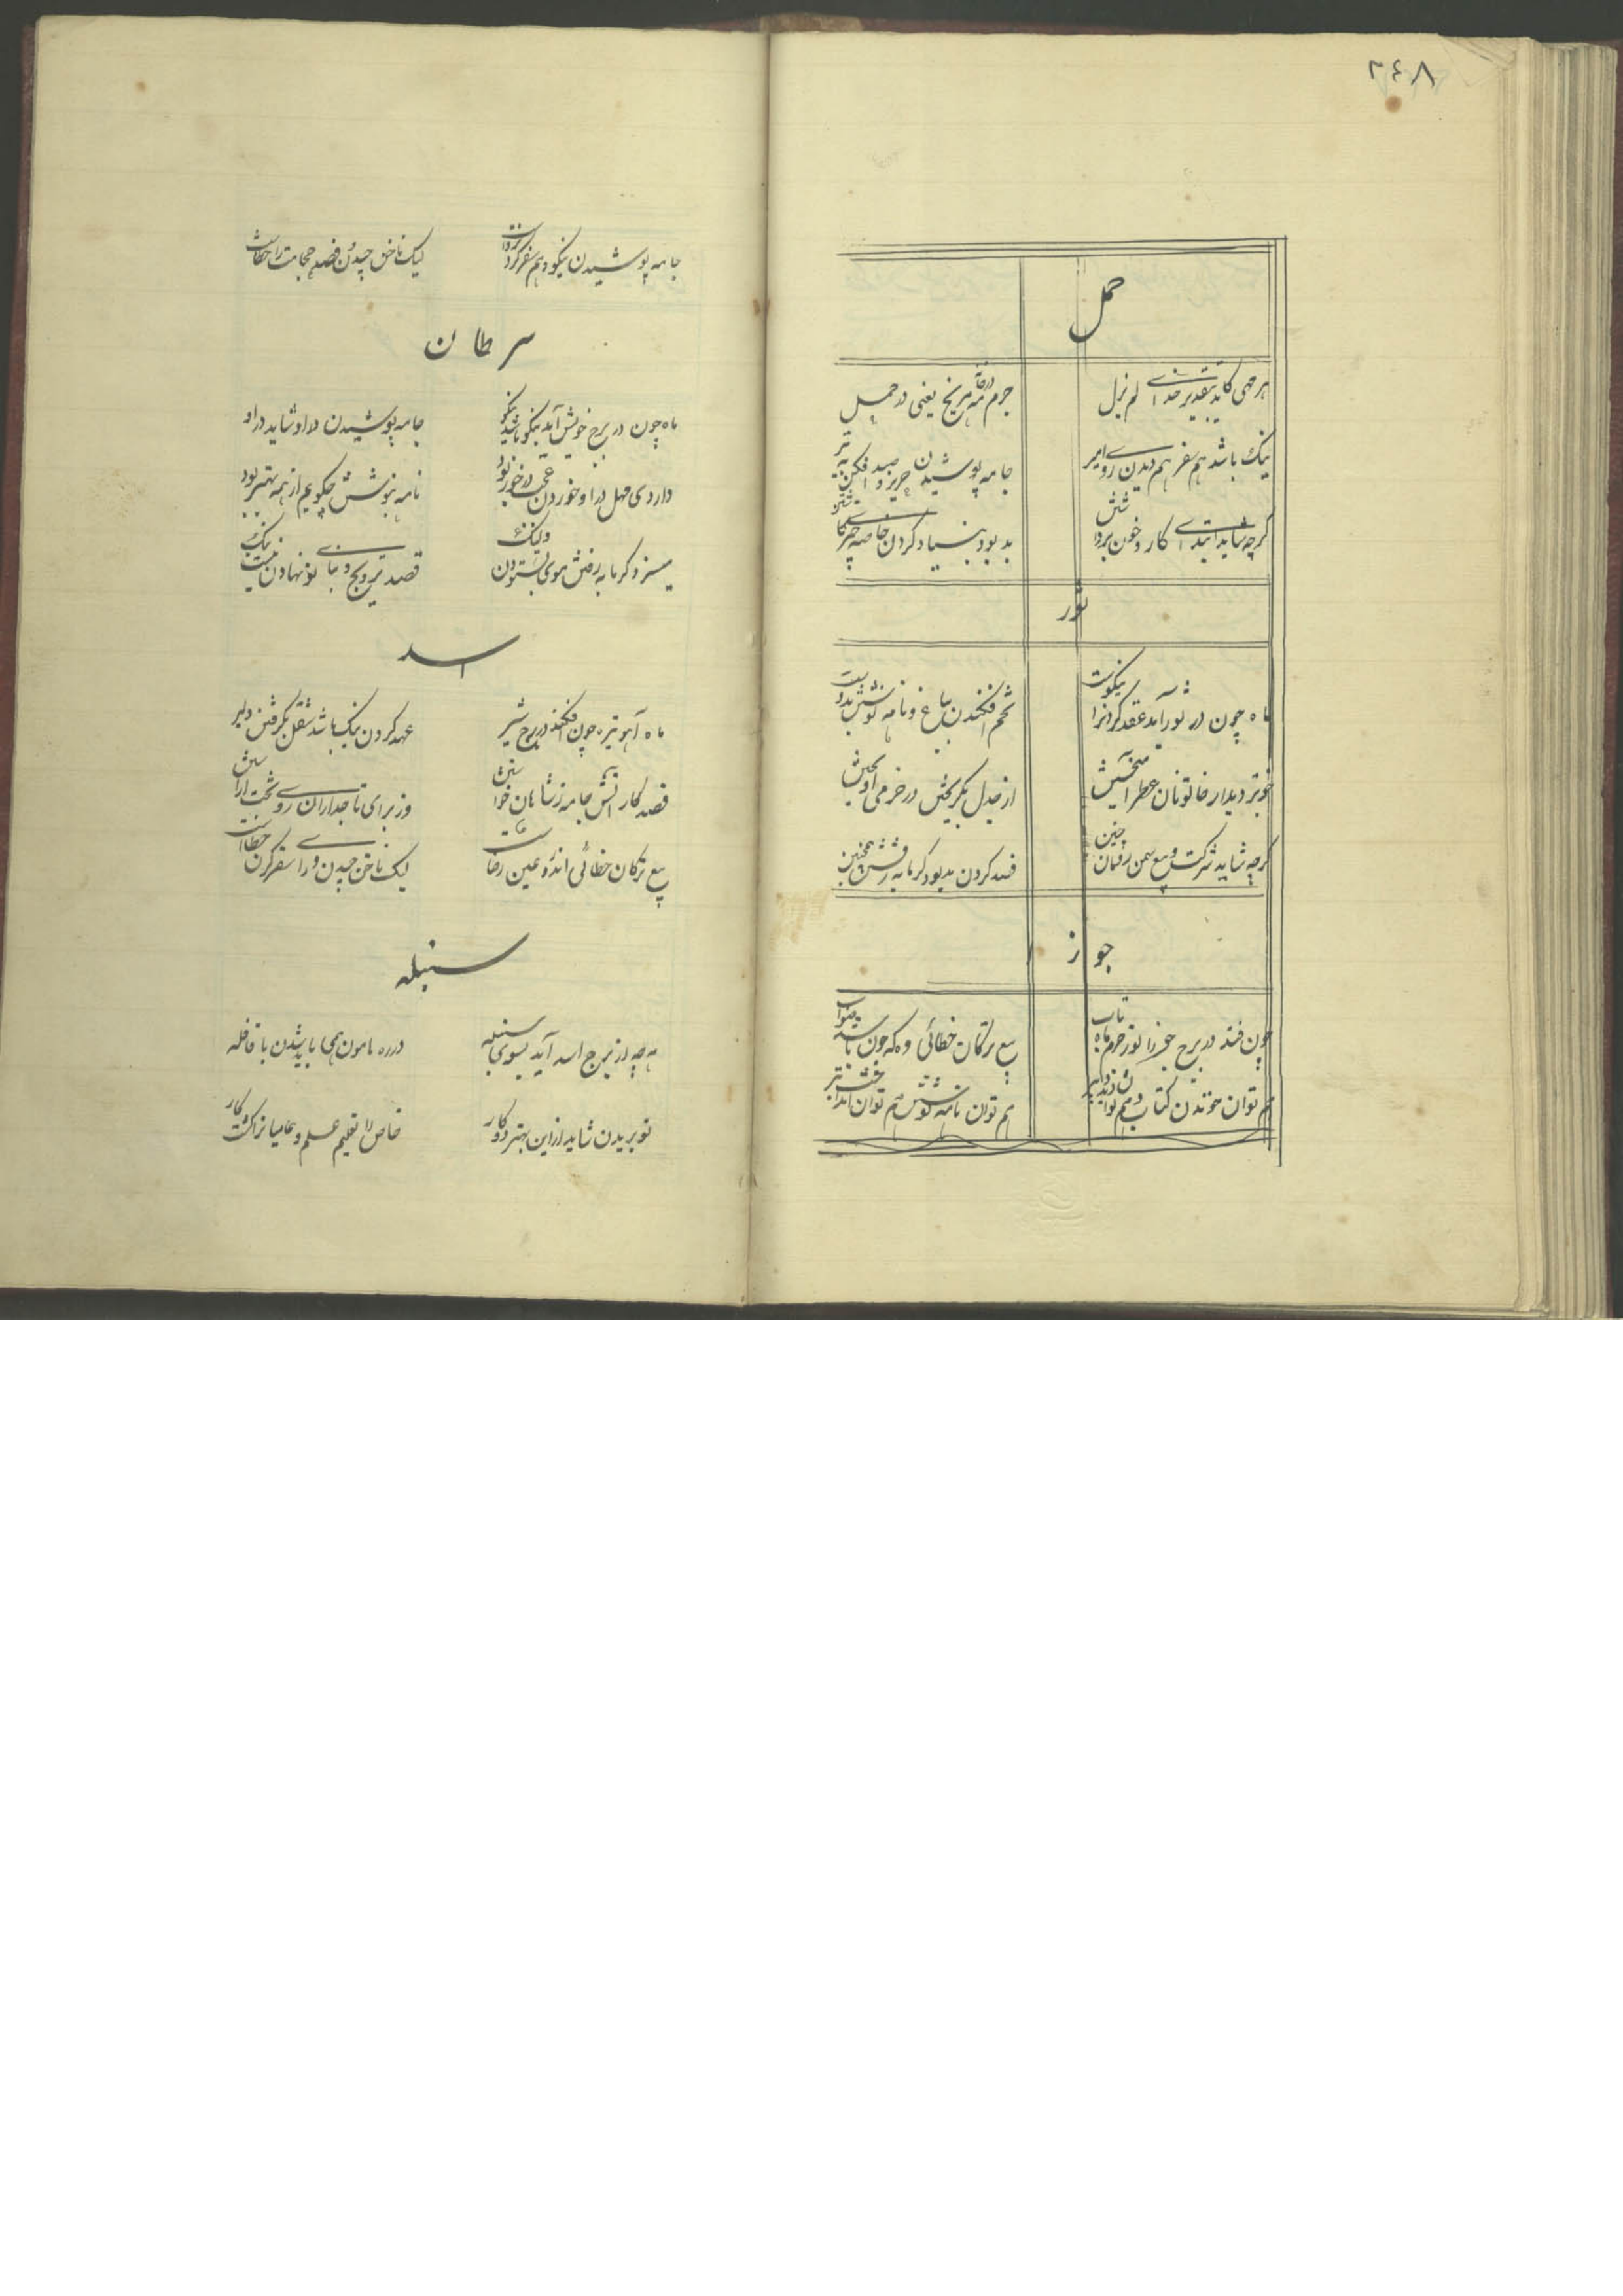 ۲۴۸
حمل
هر مهی کاید بتقدیر خدای لم یزل
جرم مه در خانه مریخ یعنی در حمل
نیک باشد هم سفر هم دیدن روی امیر
جامه پوشیدن حریر و صید افکن به تیر
گرچه شاید ابتدای کار و خون برداشتن
بد بود بنیاد کردن خاصه چیزی کاشتن
ثور
ماه چون در ثور آمد عقد کردن را نیکوست
تخم افکندن بباغ و نامه نوشتن بدوست
خوبتر دیدار خاتونان عطر آمیختن
از جدل بگریختن در خرمی آویختن
گرچه شاید شرکت و بیع سمن رویان چنین
قصد کردن بد بود گرمابه رفتن همچنین
جوز
چون فتد در برج جوزا نور جرم ماه تاب
بیع ترکان خطائی وه که چون باشد صواب
هم توان خوندن کتاب و هم توان دیدن دبیر
هم توان نامه نوشتن هم توان انداخت تیر
جامه پوشیدن نیکو و هم سفر کردن
لیک ناخن چیدن و فصد و حجامت را خطاست
سرطان
ماه چون در برج خویش آید نیکو باشد نیکو
جامه پوشیدن در او شاید در او
داروی مهل در او خوردن عجب در خور بود
نامه بنوشتن چگویم از همه بهتر بود
میسزد گرمابه رفتن موی بستردن ولیک
قصد تزویج و بنای نو نهادن نیست نیک
اسد
ماه آهو تیره چون افکند در برج شیر
عهد کردن نیک باشد شغل بگرفتن دلیر
قصد کار آتش جامه ز شاهان خواستن
وز برای تاجداران روی تخت آراستن
بیع ترکان خطائی اندرو عین رضاست
لیک ناخن چیدن و را سفر کردن خطاست
سنبله
مه چه از برج اسد آید بسوی سنبله
در ره هامون همی باید شدن با قافله
نو بریدن شاید از این بهتر دو کار
خاص را تعلیم علم و عامیان را کشت کار